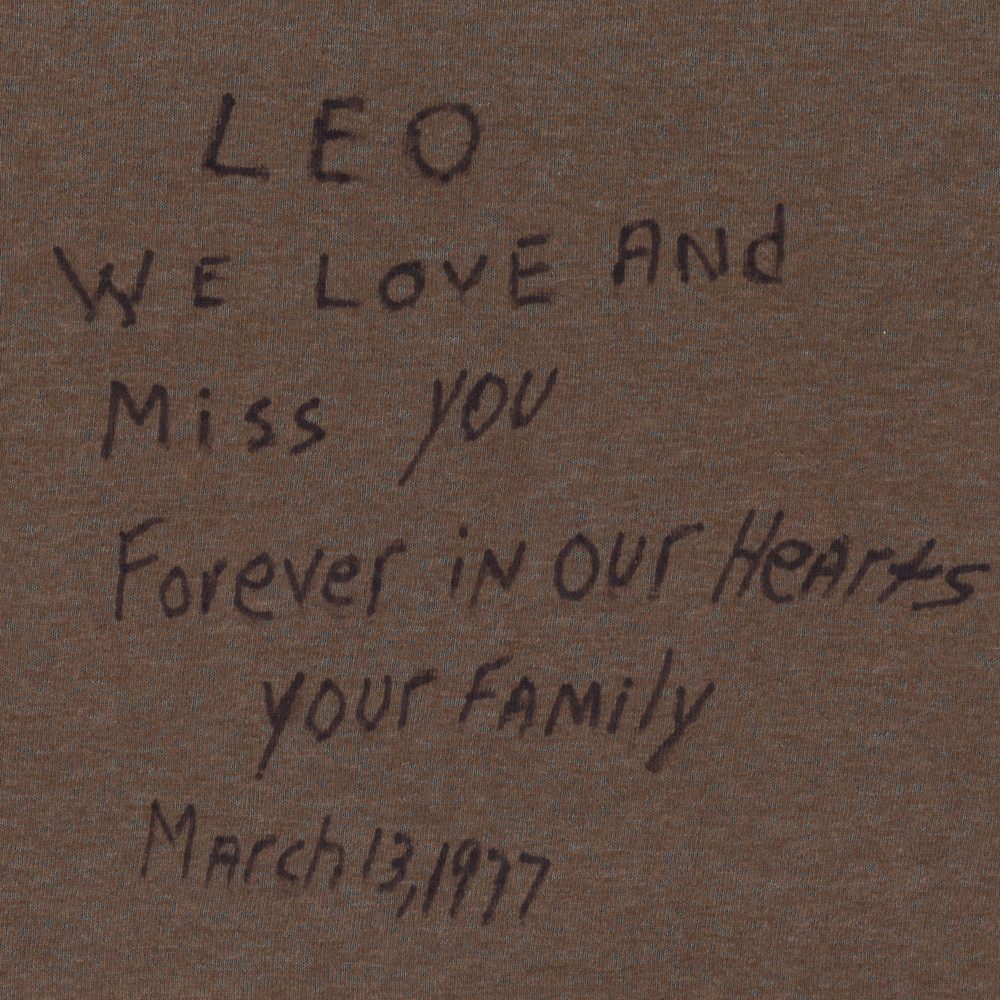 LEO
WE LOVE ANd
Miss you
Forever iN our HeArts
your FAMily
MArch 13, 1977